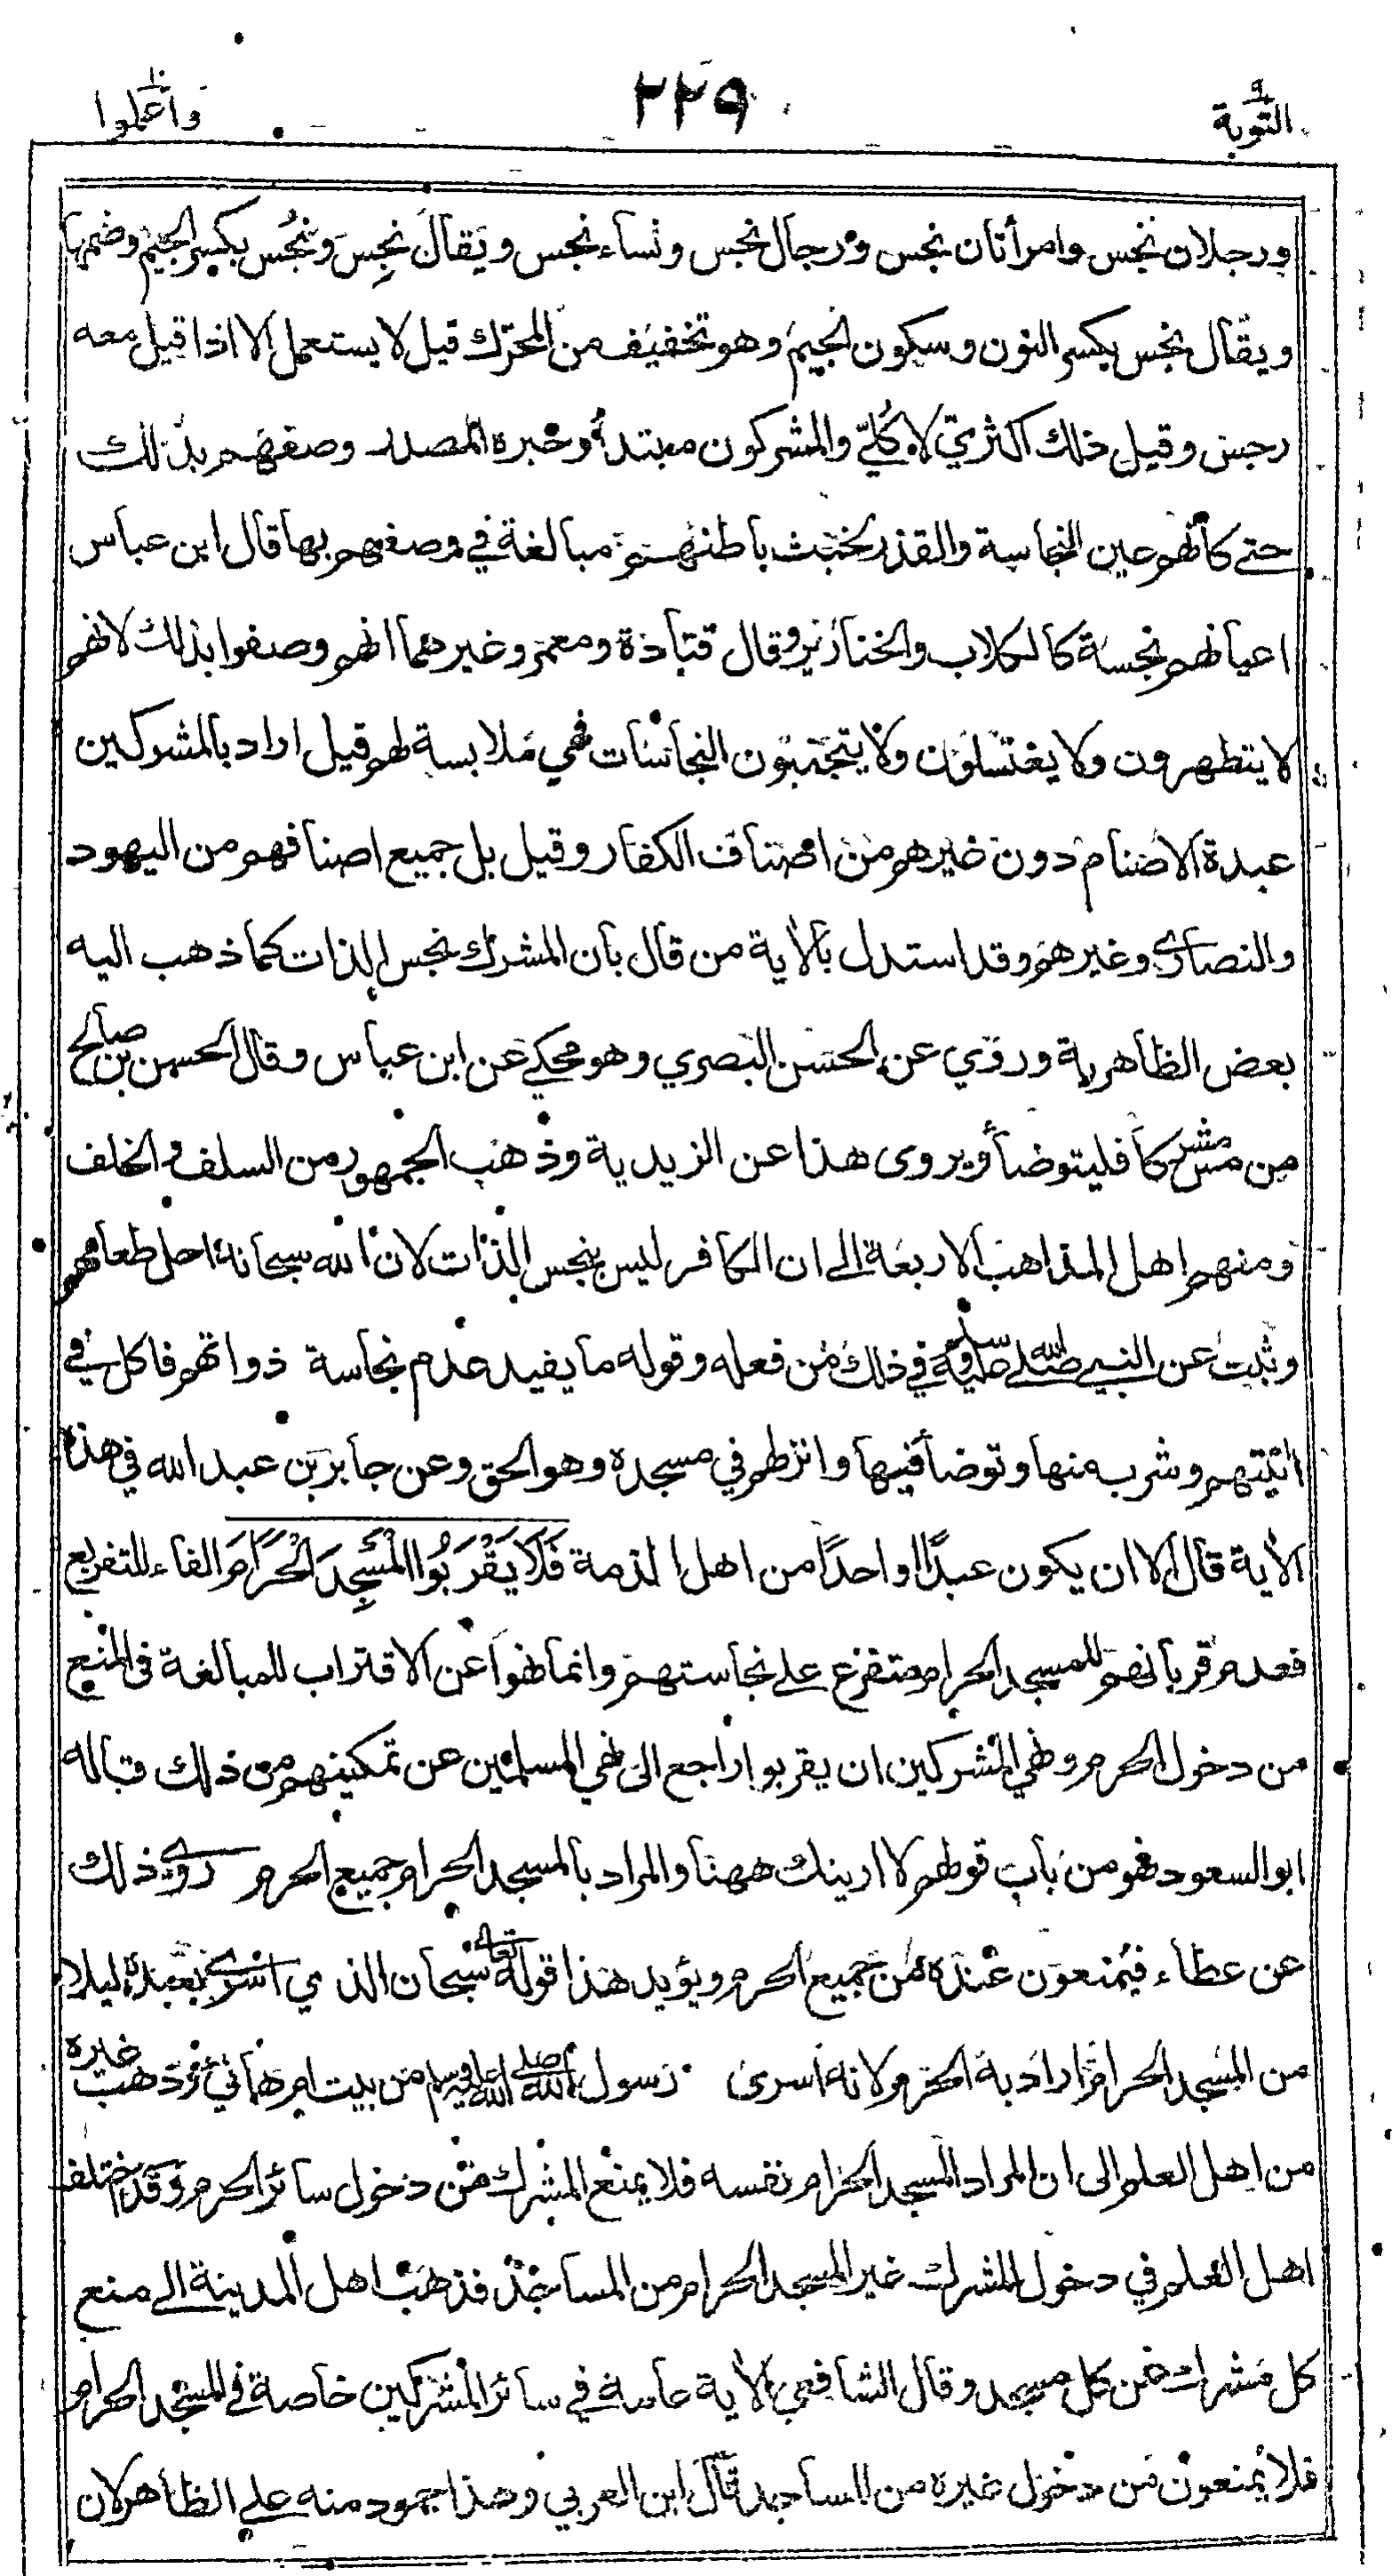 التوبة ٩
٢٢٩
واعلموا ١٠
ورجلان نجس وامرأتان نجس ورجال نجس ونساء نجس ويقال نجِس ونجُس بكسر الجيم وضمها
ويقال نجس بكسر النون وسكون الجيم وهو تخفيف من المحرّك قيل لا يستعمل الا اذا قيل معه
رجس وقيل ذلك اكثريّ لا كُلّيّ والمشركون مبتدأ وخبره المصدر وصفهم بذلك
حتى كأنهم عين النجاسة والقذر لخبث باطنهم مبالغة في وصفهم بها قال ابن عباس
اعيانهم نجسة كالكلاب والخنازير وقال قتادة ومعمر وغيرهما انهم وصفوا بذلك لانهم
لا يتطهرون ولا يغتسلون ولا يتجنبون النجاسات فهي ملابسة لهم قيل اراد بالمشركين
عبدة الاصنام دون غيرهم من اصناف الكفار وقيل بل جميع اصنافهم من اليهود
والنصارى وغيرهم وقد استدل بالاية من قال بان المشرك نجس الذات كما ذهب اليه
بعض الظاهرية وروي عن الحسن البصري وهو محكي عن ابن عباس وقال الحسن بن صالح
من مس مشركا فليتوضأ ويروى هذا عن الزيدية وذهب الجمهور من السلف والخلف
ومنهم اهل المذاهب الاربعة الى ان الكافر ليس بنجس الذات لان الله سبحانه احل طعامهم
وثبت عن النبي صلى الله عليه وسلم في ذلك من فعله وقوله ما يفيد عدم نجاسة ذواتهم فاكل في
انيتهم وشرب منها وتوضأ فيها وانزلهم في مسجده وهو الحق وعن جابر بن عبد الله في هذه
الاية قال الا ان يكون عبدًا او احدًا من اهل الذمة فَلَا يَقْرَبُوا الْمَسْجِدَ الْحَرَامَ الفاء للتفريع
فعدم قربانهم للمسجد الحرام متفرع على نجاستهم وانما نهوا عن الاقتراب للمبالغة في المنع
من دخول الحرم ونهي المشركين ان يقربوا راجع الى نهي المسلمين عن تمكينهم من ذلك قاله
ابو السعود فهو من باب قولهم لا ارينك ههنا والمراد بالمسجد الحرام جميع الحرم روي ذلك
عن عطاء فيمنعون عنده من جميع الحرم ويؤيد هذا قوله تعالى سبحان الذي اسرى بعبده ليلا
من المسجد الحرام اراد به الحرم لانه اسرى رسول الله صلى الله عليه وسلم من بيت ام هانئ وذهب غيره
من اهل العلم الى ان المراد المسجد الحرام نفسه فلا يمنع المشرك من دخول سائر الحرم وقد اختلف
اهل العلم في دخول المشرك غير المسجد الحرام من المساجد فذهب اهل المدينة الى منع
كل مشرك عن كل مسجد وقال الشافعي الاية عامة في سائر المشركين خاصة في المسجد الحرام
فلا يمنعون من دخول غيره من المساجد قال ابن العربي وهذا جمود منه على الظاهر لان